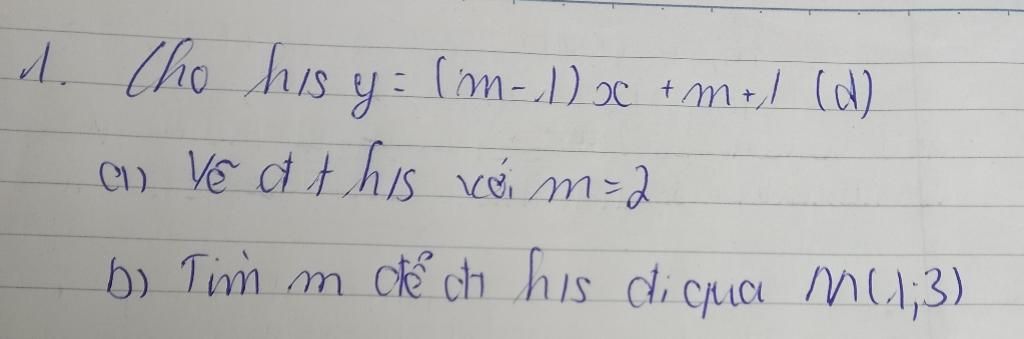 1. Cho h/s y = (m-1)x + m+1 (d)
a) Vẽ đt h/s với m=2
b) Tìm m để đt h/s đi qua M(1;3)